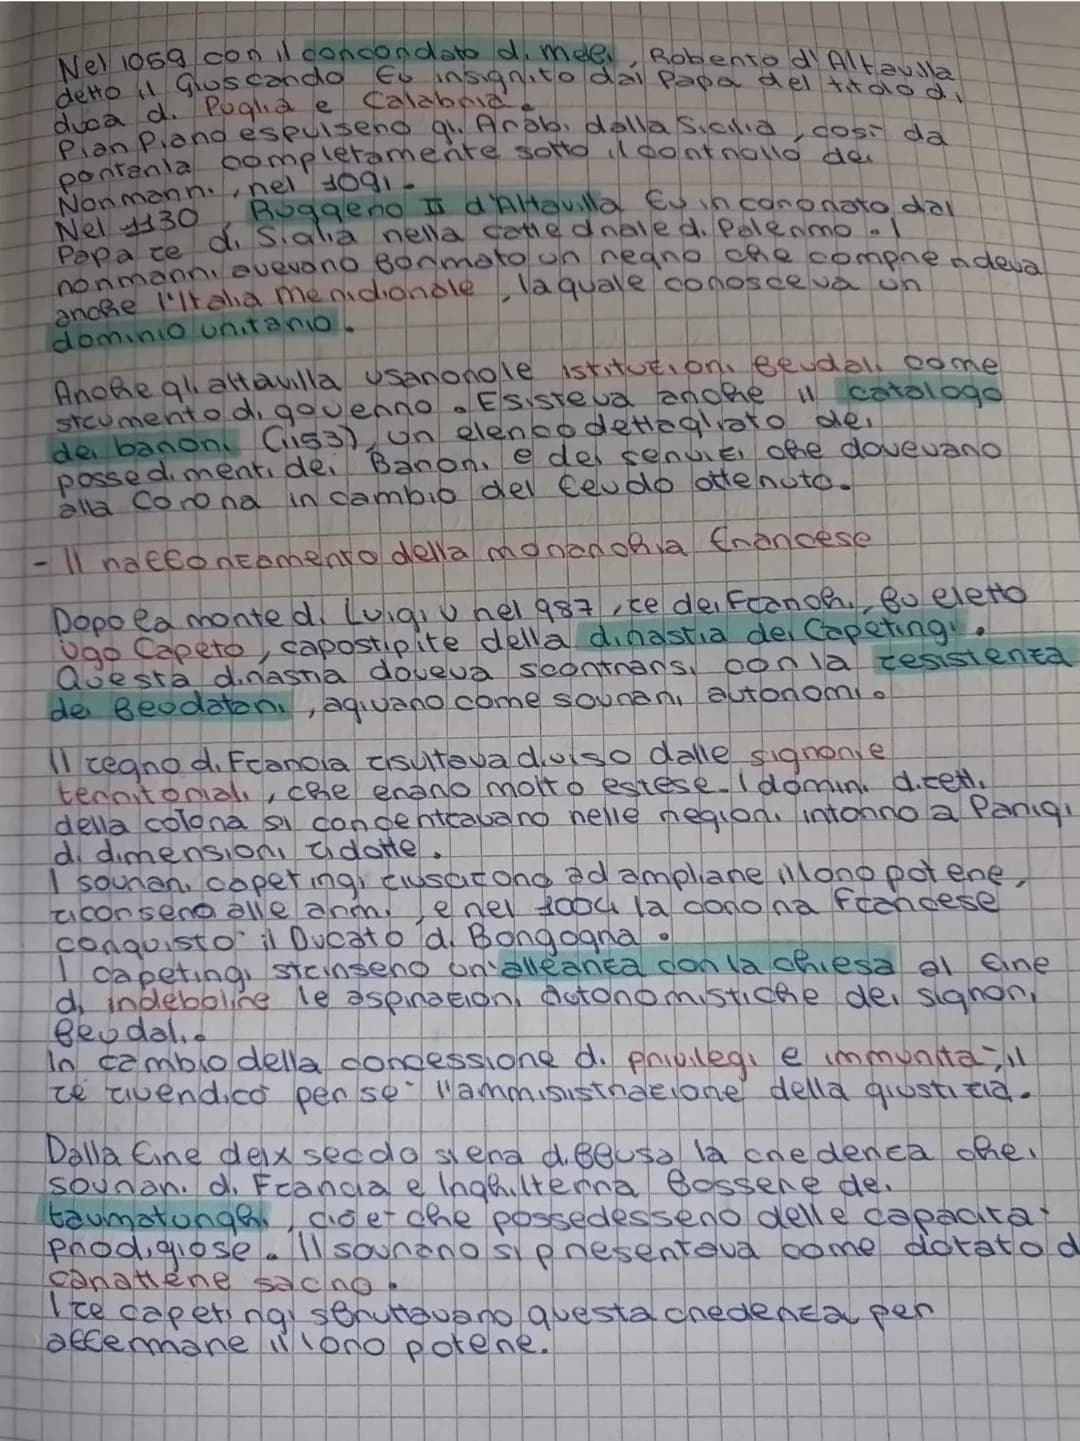 Nel 1059 con il concordato di melfi, Roberto d'Altavilla
detto il Guiscardo fu insignito dal Papa del titolo di
duca di Puglia e Calabria.
Pian Piano espulsero gli Arabi dalla Sicilia, così da
portarla completamente sotto il controllo dei
Normanni, nel 1091.
Nel 1130, Ruggero II d'Altavilla fu incoronato dal
Papa re di Sicilia nella cattedrale di Palermo. I
normanni avevano formato un regno che comprendeva
anche l'Italia meridionale, la quale conosceva un
dominio unitario.
Anche gli altavilla usarono le istituzioni feudali come
strumento di governo. Esisteva anche il catalogo
dei baroni (1153), un elenco dettagliato dei
possedimenti dei Baroni e dei servizi che dovevano
alla Corona in cambio del feudo ottenuto.
- Il rafforzamento della monarchia francese
Dopo la morte di Luigi V nel 987, re dei Franchi, fu eletto
Ugo Capeto, capostipite della dinastia dei Capetingi.
Questa dinastia doveva scontrarsi con la resistenza
dei feodatari, agivano come sovrani autonomi.
Il regno di Francia risultava diviso dalle signorie
territoriali, che erano molto estese. I domini diretti
della colona si concentravano nelle regioni intorno a Parigi
di dimensioni ridotte.
I sovrani capetingi riuscirono ad ampliare il loro potere,
ricorsero alle armi, e nel 1004 la corona francese
conquistò il Ducato di Borgogna.
I capetingi strinsero un'alleanza con la chiesa al fine
di indebolire le aspirazioni autonomistiche dei signori
feudali.
In cambio della concessione di privilegi e immunità, il
re rivendicò per sé l'ammisistrazione della giustizia.
Dalla fine del X secolo si era diffusa la credenza che i
sovrani di Francia e Inghilterra fossere dei
taumaturghi, cioè che possedessero delle capacità
prodigiose. Il sovrano si presentava come dotato d
carattere sacro.
I re capetingi sfruttavano questa credenza per
affermare il loro potere.